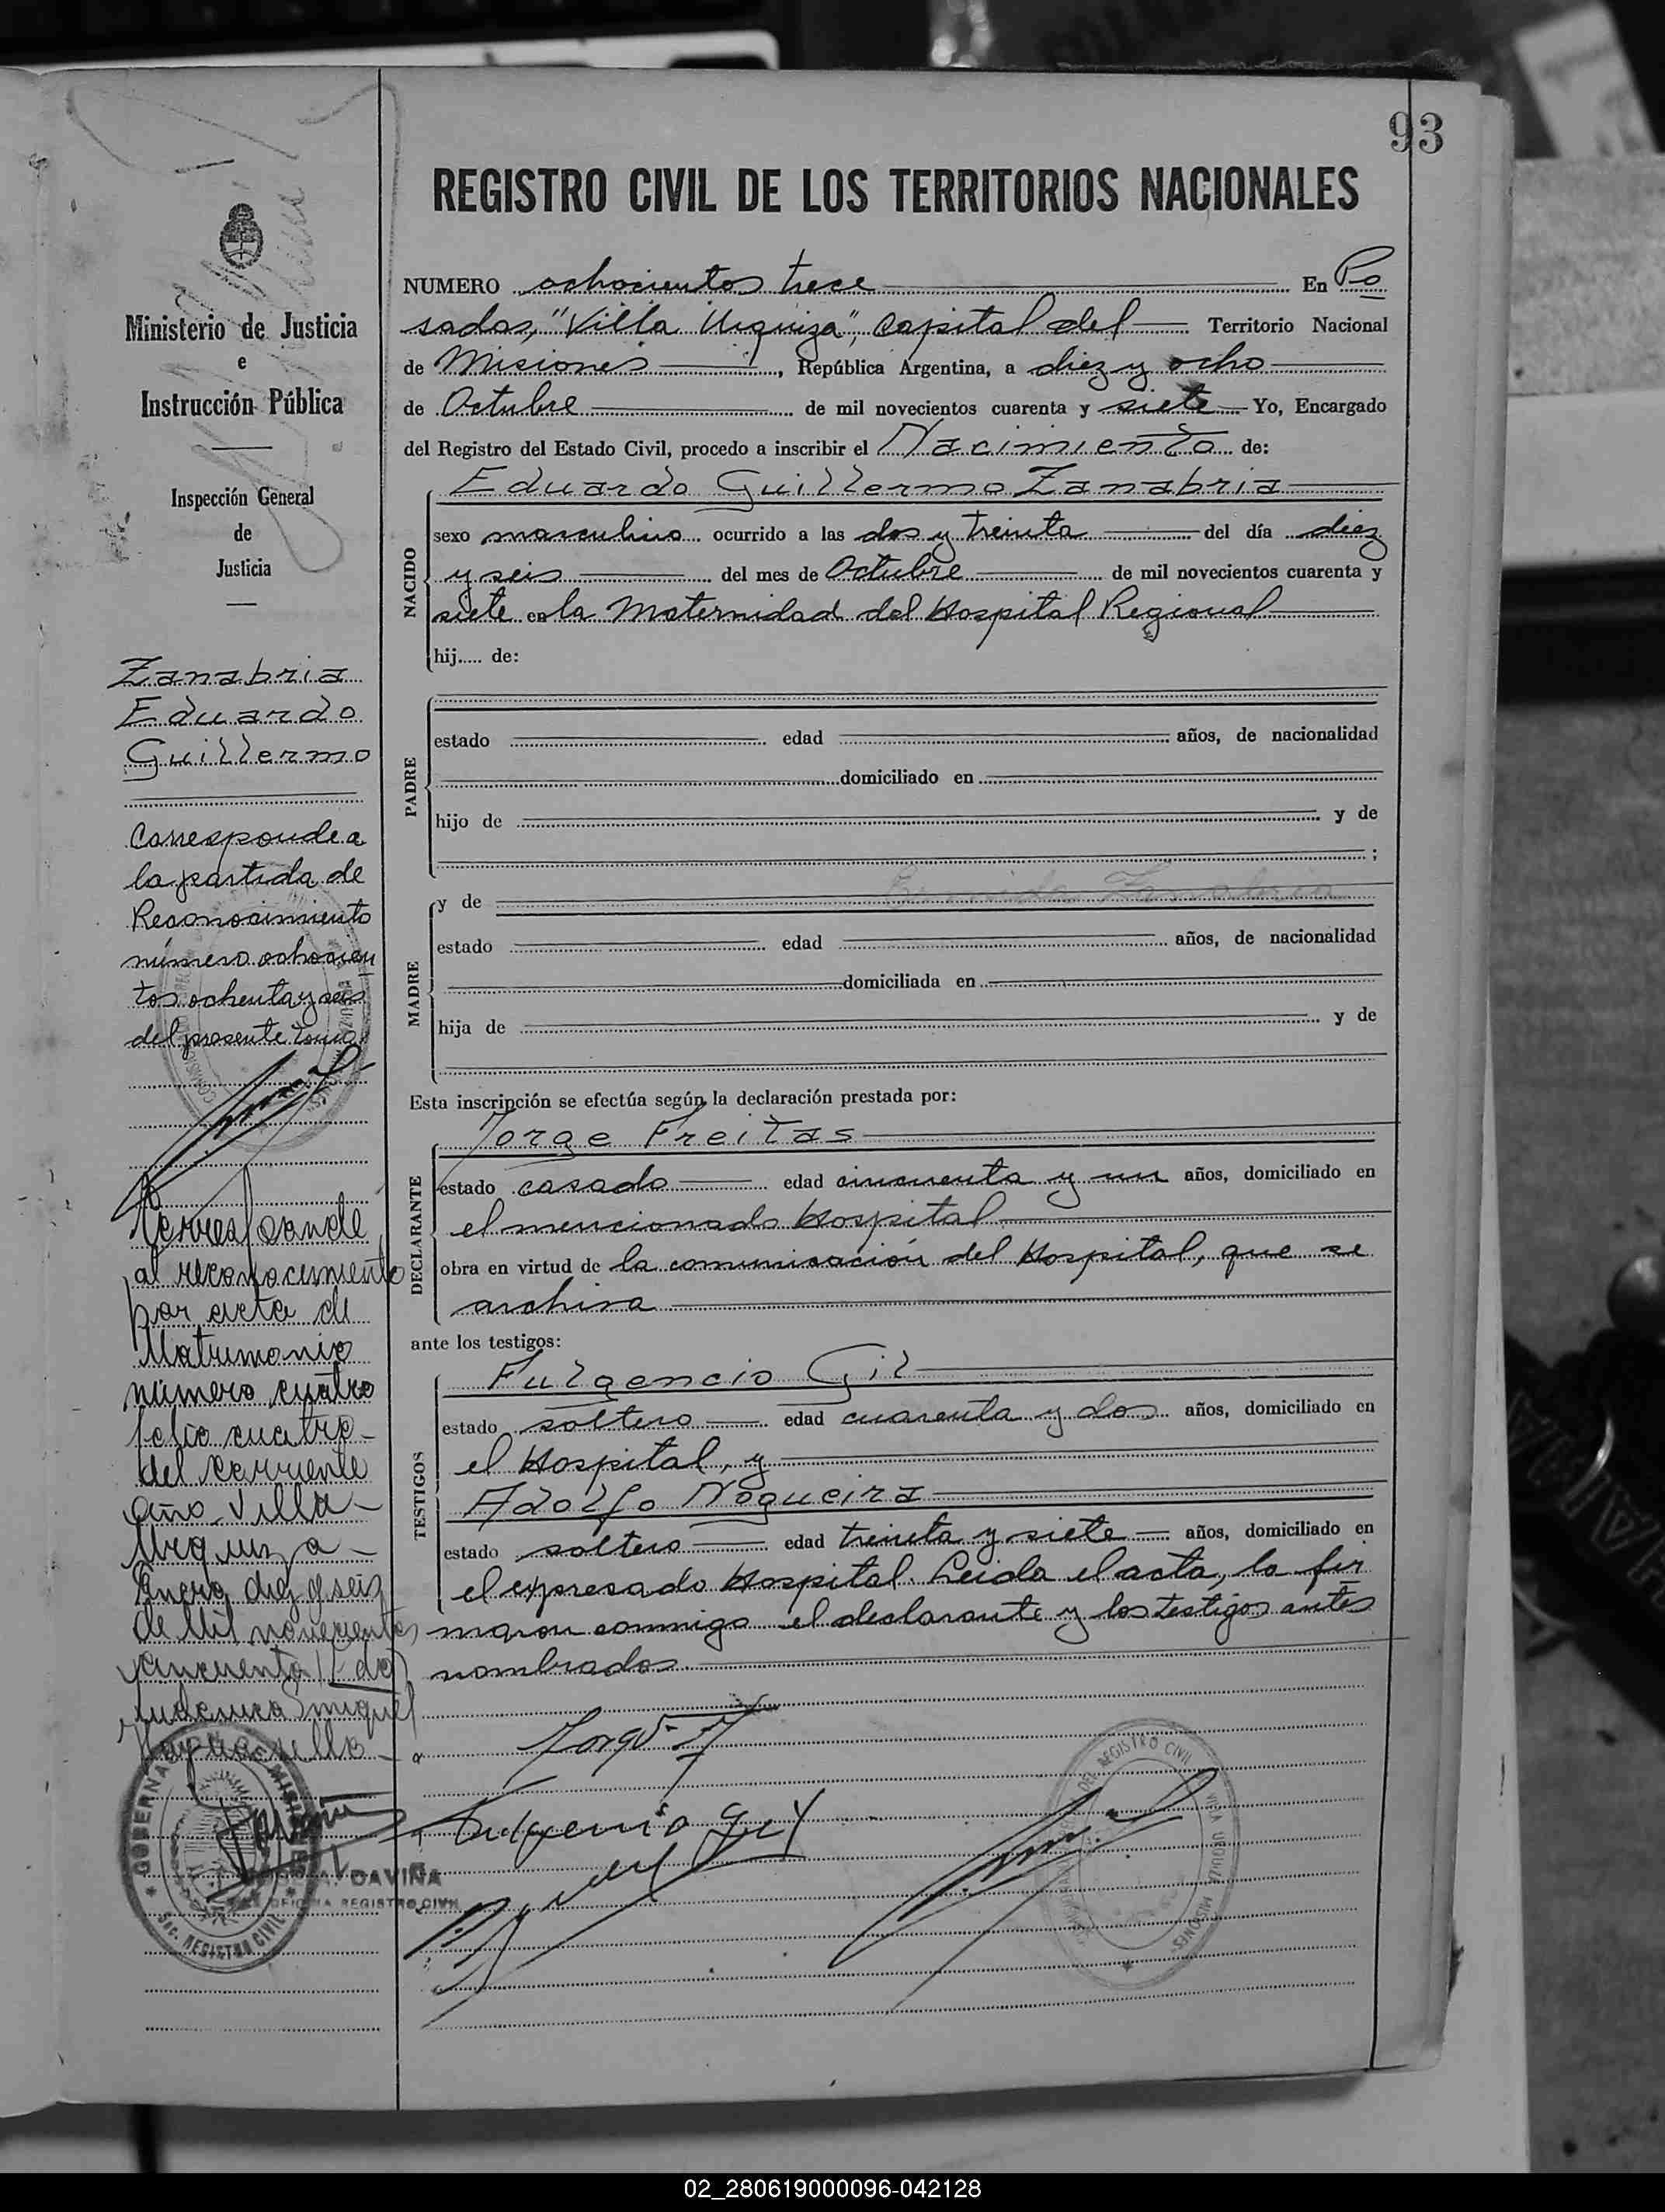 93
REGISTRO CIVIL DE LOS TERRITORIOS NACIONALES
Ministerio de Justicia
e
Instrucción Pública
Inspección General
de
Justicia
Zanabria
Eduardo
Guillermo
Corresponde a
la partida de
Reconocimiento
número ochocien
tos ochenta y seis
del presente tomo.
al reconocimiento
por acta de
Matrimonio
número cuatro
folio cuatro
del corriente
año. Villa
Urquiza
Enero diez y seis
de Mil novecientos
cincuenta y dos
GOBERNA MISIONES
SEC. REGISTRO CIVIL
DAVIÑA
OFICINA REGISTRO CIVIL
NUMERO ochocientos trece En Po
sadas, "Villa Urquiza", Capital del Territorio Nacional
de Misiones, República Argentina, a diez y ocho
de Octubre de mil novecientos cuarenta y siete Yo, Encargado
del Registro del Estado Civil, procedo a inscribir el Nacimiento de:
NACIDO
Eduardo Guillermo Zanabria
sexo masculino ocurrido a las dos y treinta del día diez
y seis del mes de Octubre de mil novecientos cuarenta y
siete en la Maternidad del Hospital Regional
hij..... de:
PADRE
estado edad años, de nacionalidad
domiciliado en
hijo de y de
;
MADRE
y de Zanabria
estado edad años, de nacionalidad
domiciliada en
hija de y de
Esta inscripción se efectúa según la declaración prestada por:
DECLARANTE
Jorge Freitas
estado casado edad cincuenta y un años, domiciliado en
el mencionado Hospital
obra en virtud de la comunicación del Hospital, que se
archiva
ante los testigos:
TESTIGOS
Fulgencio Gil
estado soltero edad cuarenta y dos años, domiciliado en
el Hospital, y
Adolfo Nogueira
estado soltero edad treinta y siete años, domiciliado en
el expresado Hospital. Leida el acta, la fir
maron conmigo el declarante y los testigos antes
nombrados.
Jorge F
Fulgencio Gil
DEL REGISTRO CIVIL VILLA URQUIZA MISIONES
02_280619000096-042128